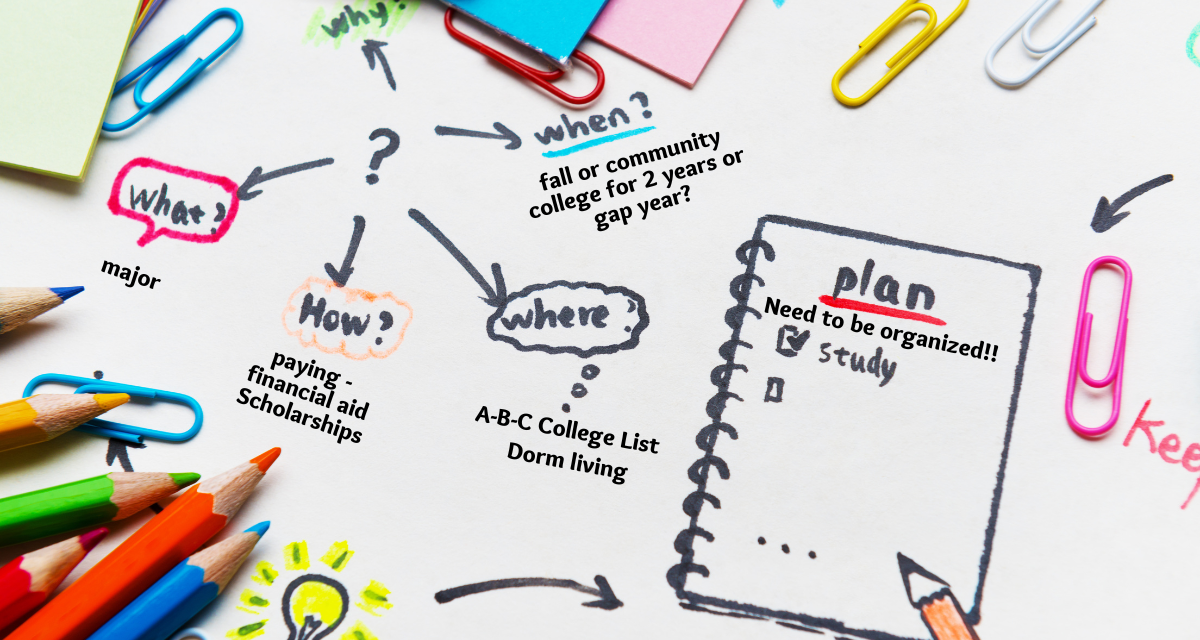 why?
?
when?
fall or community
college for 2 years or
gap year?
What?
major
How?
paying -
financial aid
Scholarships
where?
A-B-C College List
Dorm living
plan
Need to be organized!!
study
...